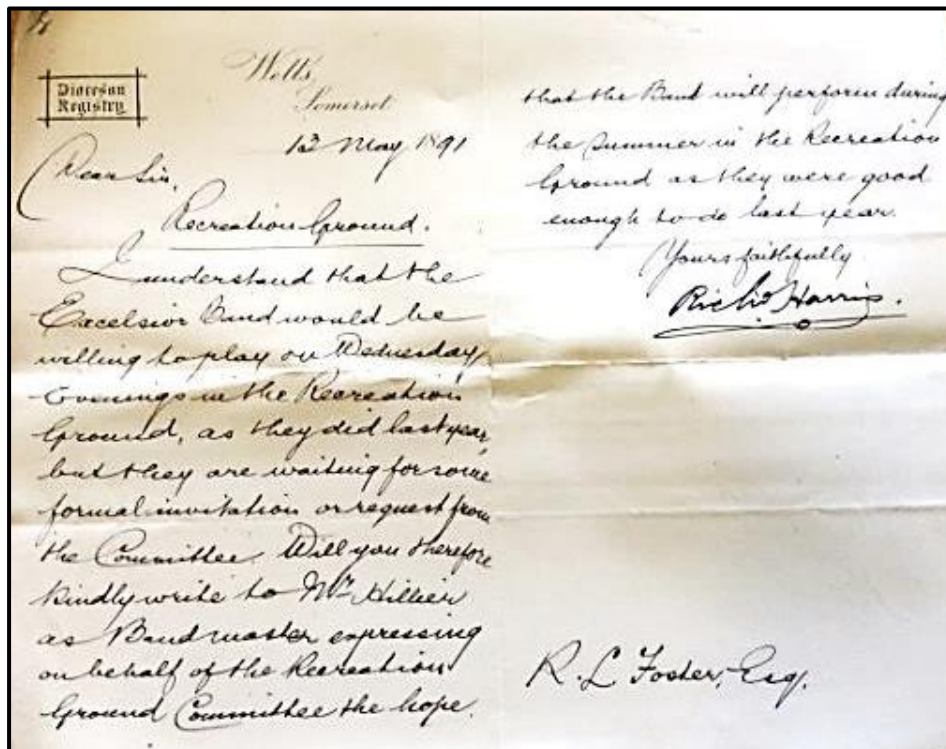 Diocesan
Registry
Wells,
Somerset.
13 May 1891
Dear Sir,
Recreation Ground.
I understand that the
Excelsior Band would be
willing to play on Wednesday
Evenings in the Recreation
Ground, as they did last year,
but they are waiting for some
formal invitation or request from
the Committee. Will you therefore
kindly write to Mr Hillier
as Bandmaster expressing
on behalf of the Recreation
Ground Committee the hope
that the Band will perform during
the Summer in the Recreation
Ground as they were good
enough to do last year.
Yours faithfully
Richd Harris.
R. L Foster, Esq.